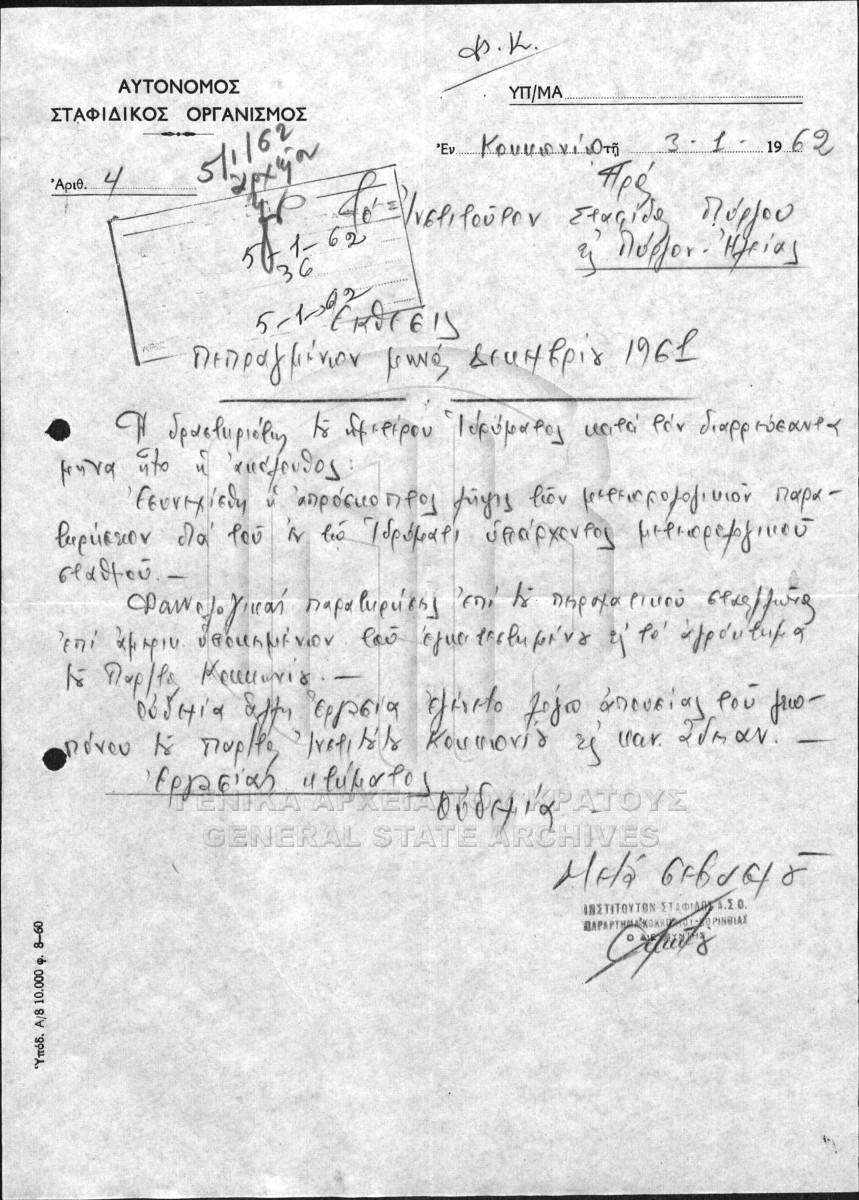 Φ. Κ.
ΑΥΤΟΝΟΜΟΣ
ΣΤΑΦΙΔΙΚΟΣ ΟΡΓΑΝΙΣΜΟΣ
ΥΠ/ΜΑ
Ἐν Κοκκωνίῳ τῇ 3-1-1962
Ἀριθ. 4
5/1/62
ἀρχεῖον
Πρὸς
Τὸ Ἰνστιτοῦτον Σταφίδος Πύργου
εἰς Πύργον-Ἠλείας
5-1-62
36
5-1-62
Ἔκθεσις
Πεπραγμένων μηνός Δεκεμβρίου 1961
Ἡ δραστηριότης τοῦ ἡμετέρου Ἱδρύματος κατά τόν διαρρεύσαντα
μῆνα ἦτο ἡ ἀκόλουθος:
Ἐσυνεχίσθη ἡ ἀπρόσκοπτος λῆψις τῶν μετεωρολογικῶν παρα-
τηρήσεων διά τοῦ ἐν τῷ Ἱδρύματι ὑπάρχοντος μετεωρολογικοῦ
σταθμοῦ.—
Φαινολογικαί παρατηρήσεις ἐπί τοῦ πειραματικοῦ
ἐπί ἀμερικ. ὑποκειμένων τοῦ ἐγκατεστημένου εἰς τό ἀγρόκτημα
τοῦ Παρ/τος Κοκκωνίου.—
Οὐδεμία ἄλλη ἐργασία ἐγένετο λόγῳ ἀπουσίας τοῦ γεω-
πόνου τοῦ παρ/τος Ἰνστιτούτου Κοκκωνίου εἰς καν. ἄδειαν.—
Ἐργασίαι κτήματος
Οὐδεμία —
Μετά σεβασμοῦ
ΙΝΣΤΙΤΟΥΤΟΝ ΣΤΑΦΙΔΟΣ Α.Σ.Ο.
ΠΑΡΑΡΤΗΜΑ ΚΟΚΚΩΝΙΟΥ-ΚΟΡΙΝΘΙΑΣ
Ο ΔΙΕΥΘΥΝΤΗΣ
ΓΕΝΙΚΑ ΑΡΧΕΙΑ ΤΟΥ ΚΡΑΤΟΥΣ
GENERAL STATE ARCHIVES
Ὑπόδ. Α/8 10.000 φ. 8-60